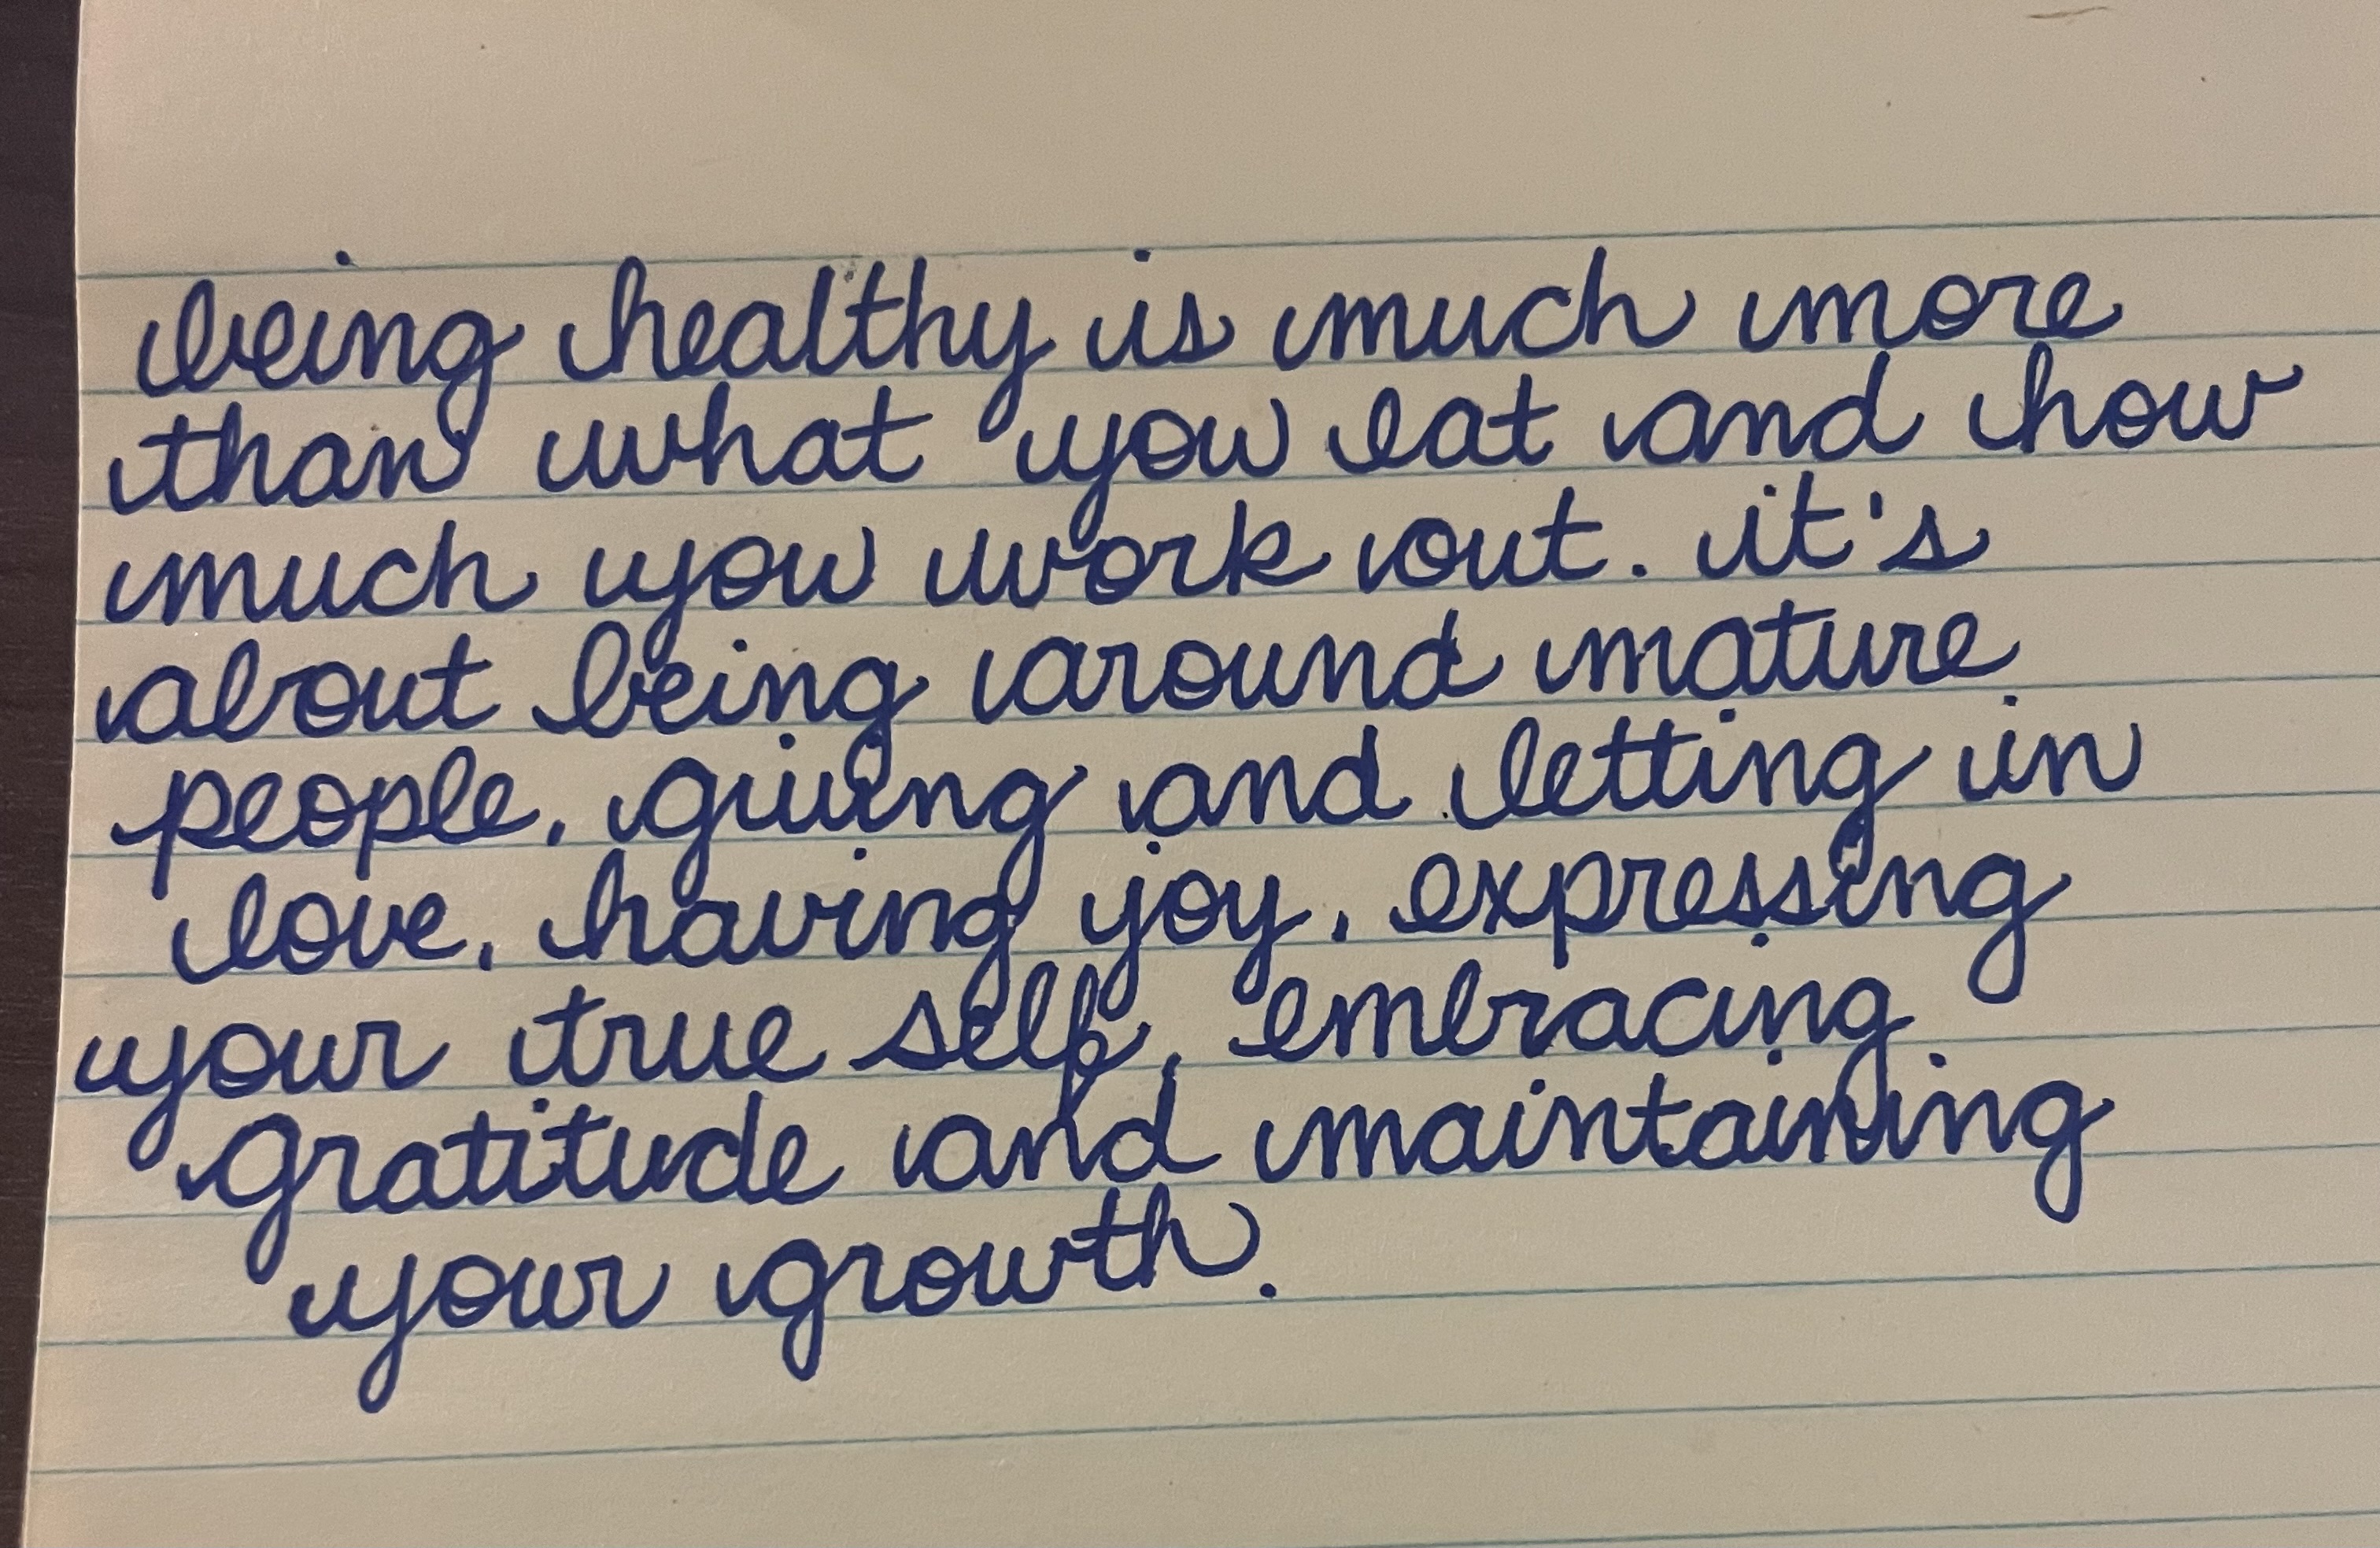 being healthy is much more
than what you eat and how
much you work out. it's
about being around mature
people, giving and letting in
love, having joy, expressing
your true self, embracing
gratitude and maintaining
your growth.